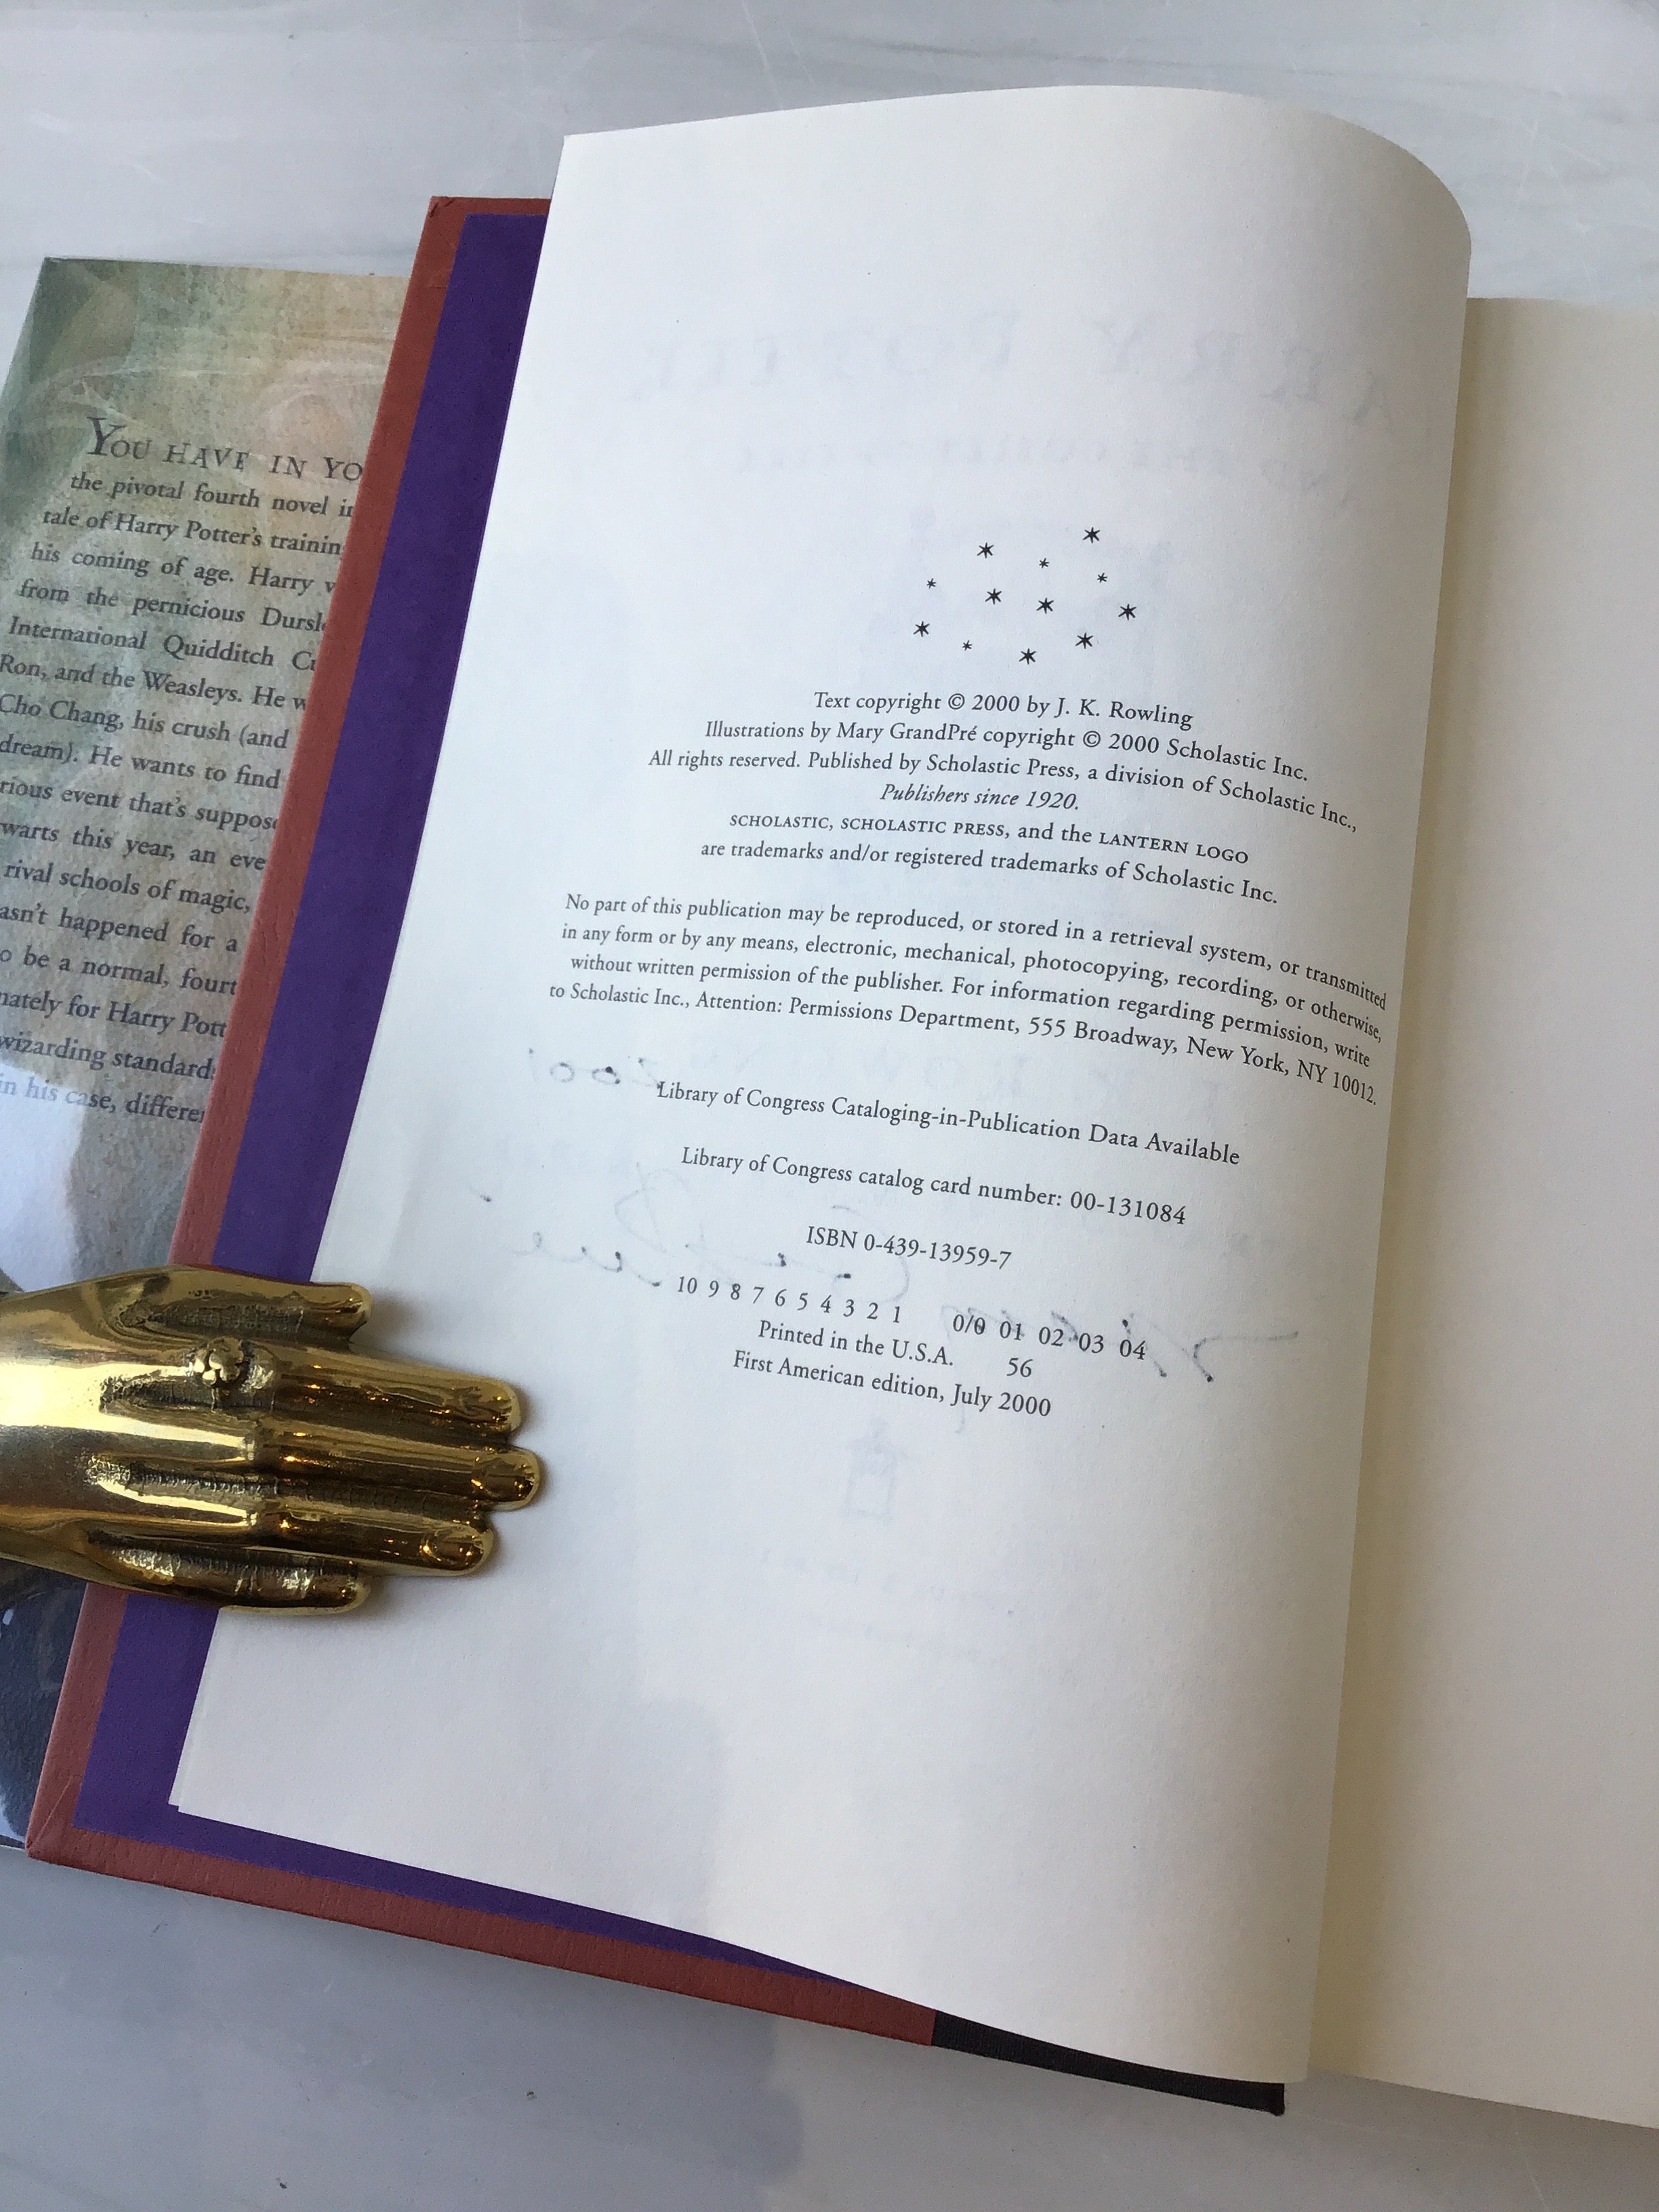 YOU HAVE IN YO
the pivotal fourth novel in
tale of Harry Potter's trainin
his coming of age. Harry w
from the pernicious Dursle
International Quidditch Cu
Ron, and the Weasleys. He w
Cho Chang, his crush (and
dream). He wants to find
rious event that's suppose
warts this year, an eve
rival schools of magic,
asn't happened for a
o be a normal, fourt
nately for Harry Pott
wizarding standards
in his case, differen
Text copyright © 2000 by J. K. Rowling
Illustrations by Mary GrandPré copyright © 2000 Scholastic Inc.
All rights reserved. Published by Scholastic Press, a division of Scholastic Inc.,
Publishers since 1920.
SCHOLASTIC, SCHOLASTIC PRESS, and the LANTERN LOGO
are trademarks and/or registered trademarks of Scholastic Inc.
No part of this publication may be reproduced, or stored in a retrieval system, or transmitted
in any form or by any means, electronic, mechanical, photocopying, recording, or otherwise,
without written permission of the publisher. For information regarding permission, write
to Scholastic Inc., Attention: Permissions Department, 555 Broadway, New York, NY 10012.
Library of Congress Cataloging-in-Publication Data Available
Library of Congress catalog card number: 00-131084
ISBN 0-439-13959-7
10 9 8 7 6 5 4 3 2 1 0/0 01 02 03 04
Printed in the U.S.A. 56
First American edition, July 2000